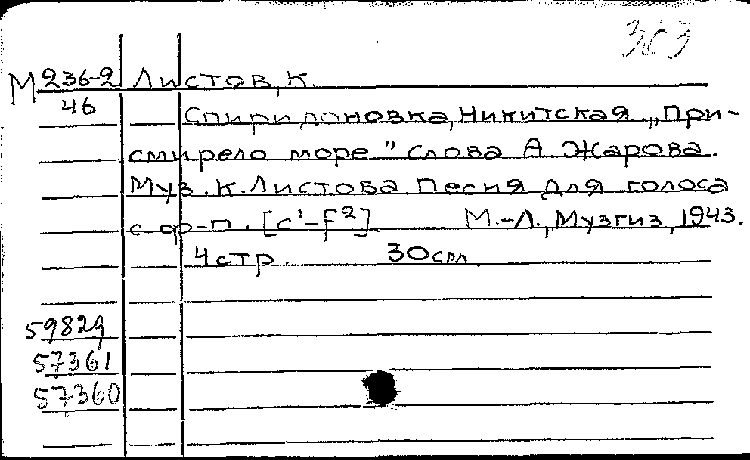 363
М 236-2 Листов, К.
46
Спиридоновка, Никитская „При-
смирело море" слова А. Жарова.
Муз. К. Листова. Песня для голоса
с ф-п. [c¹-f²] М.-Л., Музгиз, 1943.
4 стр. 30 см.
59829
57361
57360